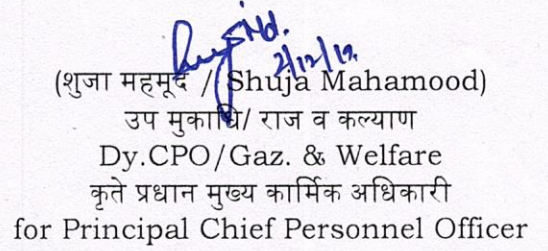 2/12/19.
(शुजा महमूद / Shuja Mahamood)
उप मुकाधि/ राज व कल्याण
Dy.CPO/Gaz. & Welfare
कृते प्रधान मुख्य कार्मिक अधिकारी
for Principal Chief Personnel Officer